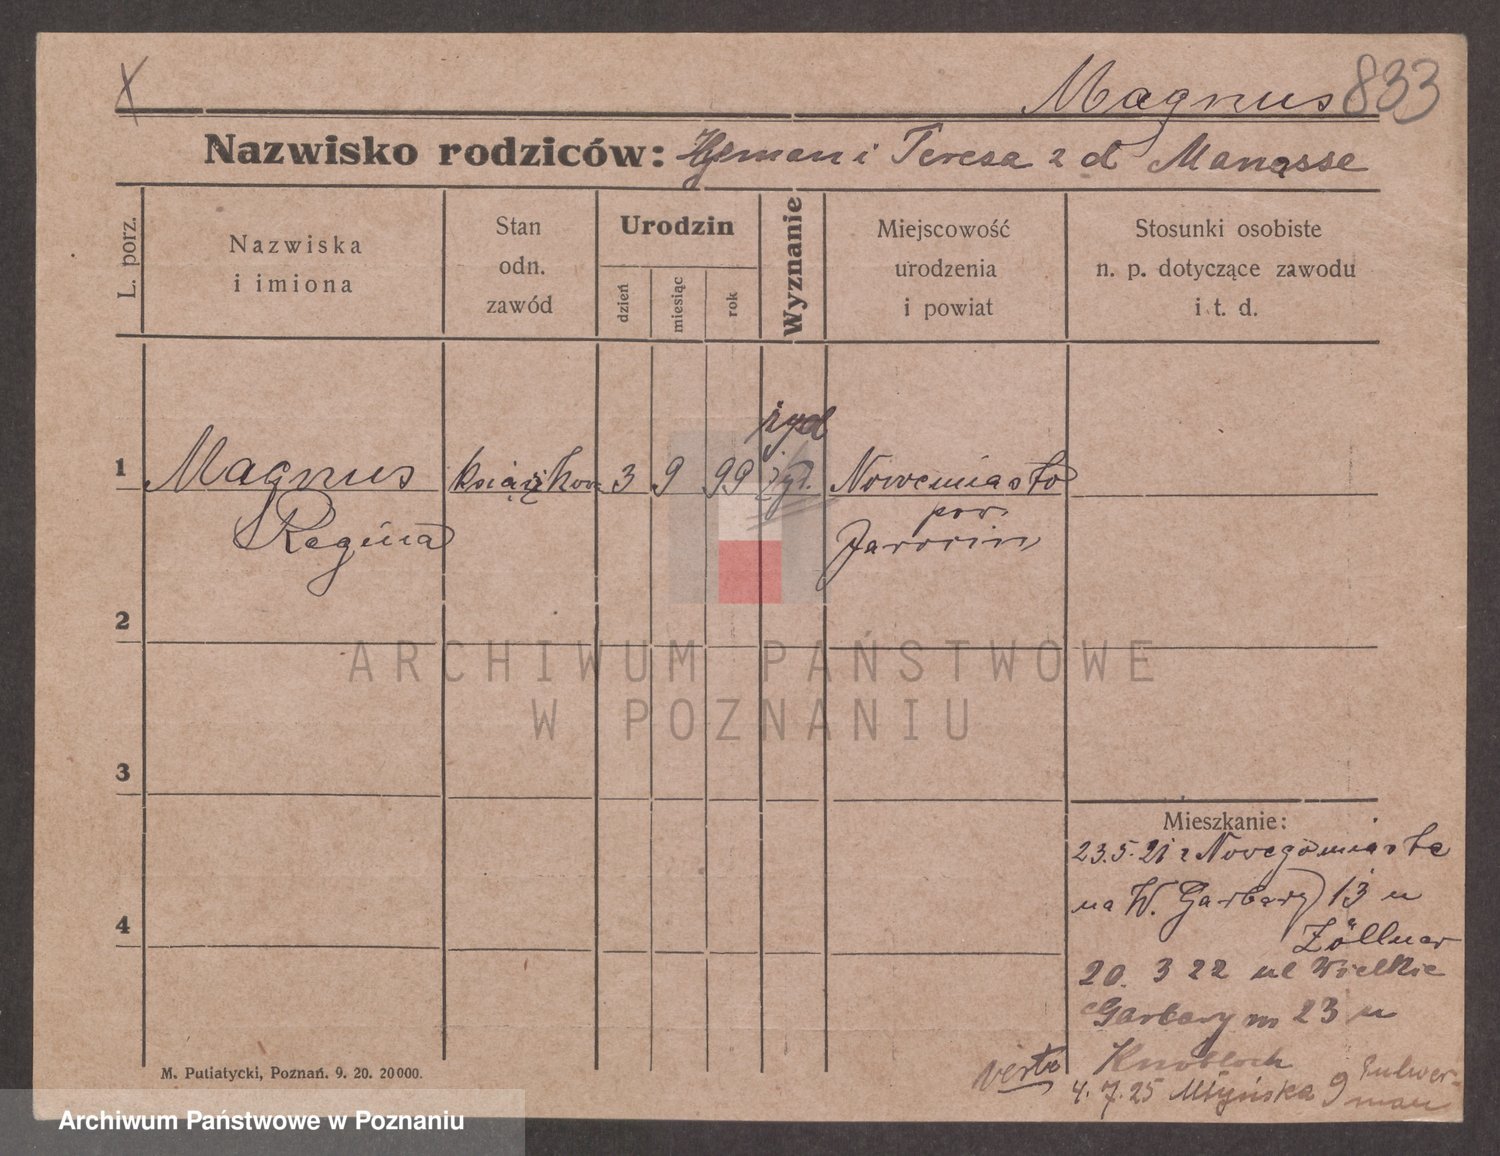 X
Magnus 833
Nazwisko rodziców: Hyman i Teresa z d Manasse
L. porz.
Nazwiska
i imiona
Stan
odn.
zawód
Urodzin
dzień
miesiąc
rok
Wyznanie
Miejscowość
urodzenia
i powiat
Stosunki osobiste
n. p. dotyczące zawodu
i t. d.
żyd
1 Magnus książkow 3 9 99 żyd. Nowemiasto
Regina pow.
Jarocin
2
3
4
Mieszkanie:
23.5.21 z Nowegomiasta
na W. Garbary 13 u
Zöllner
20. 3 22 ul Wielkie
Garbary nr 23 u
Knobloch
verte
4. 7. 25 Młyńska 9
M. Putiatycki, Poznań. 9. 20. 20000.
ARCHIWUM PAŃSTWOWE
W POZNANIU
Archiwum Państwowe w Poznaniu